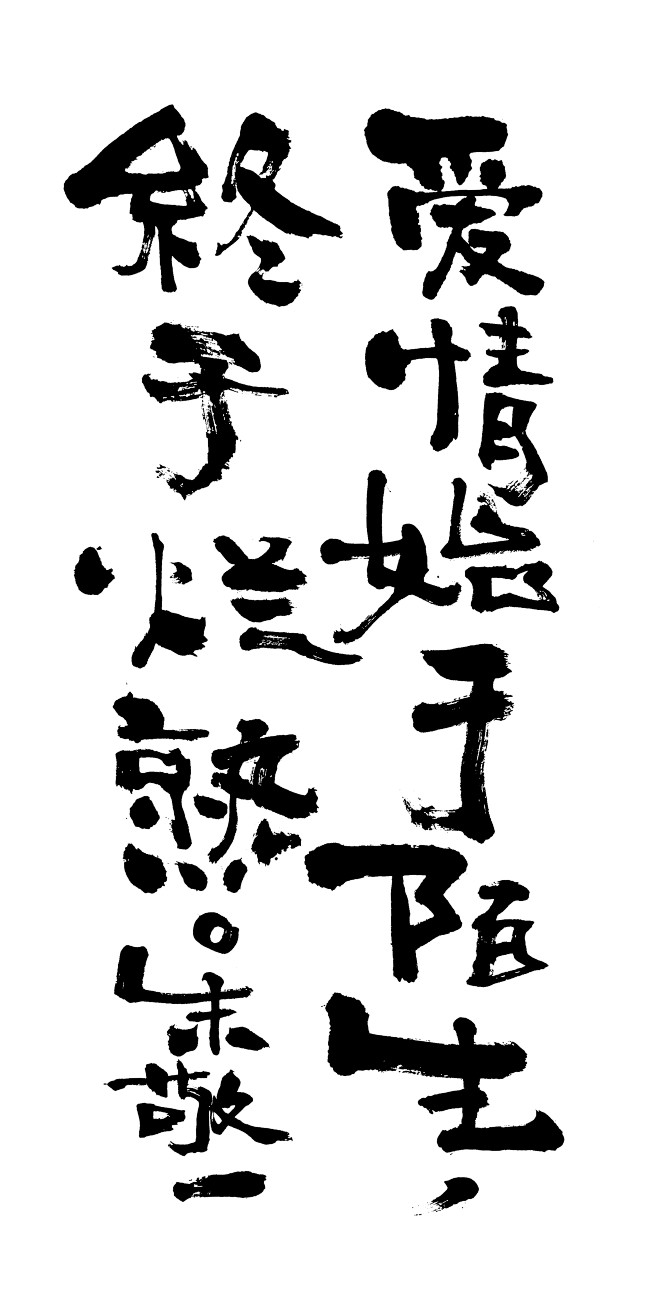 爱情始于陌生，
终于烂熟。朱敬一